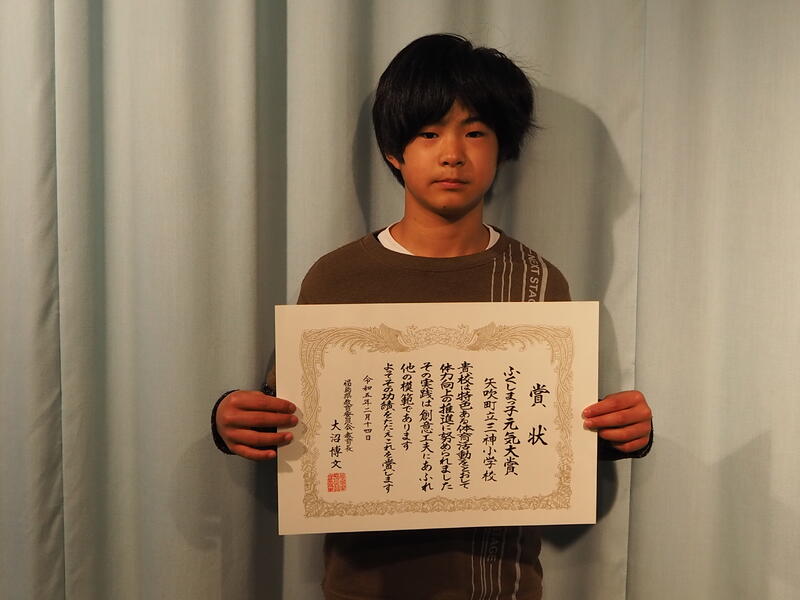 賞状
ふくしまっ子元気大賞
矢吹町立三神小学校
貴校は特色ある体育活動をとおして
体力向上の推進に努められました
その実践は創意工夫にあふれ
他の模範であります
よってその功績をたたえこれを賞します
令和五年二月十四日
福島県教育委員会教育長
大沼博文
NEXT STAG